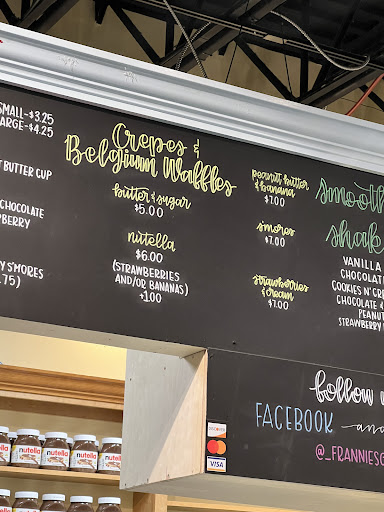 SMALL-$3.25
LARGE-$4.25
BUTTER CUP
CHOCOLATE
S'MORES
Crepes &
Belgium Waffles
butter & sugar
$5.00
nutella
$6.00
(STRAWBERRIES
AND/OR BANANAS)
+1.00
peanut butter
& banana
$7.00
s'mores
$7.00
strawberries
& cream
$7.00
VANILLA
CHOCOLATE
COOKIES N' CRE
CHOCOLATE &
PEANUT
STRAWBERRY
follow
FACEBOOK and
@_FRANNIES
DISCOVER
VISA
nutella
nutella
nutella
nutella
nutella